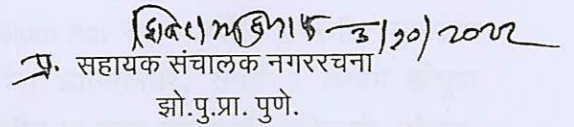 3/10/2022
प्र. सहायक संचालक नगररचना
झो.पु.प्रा. पुणे.